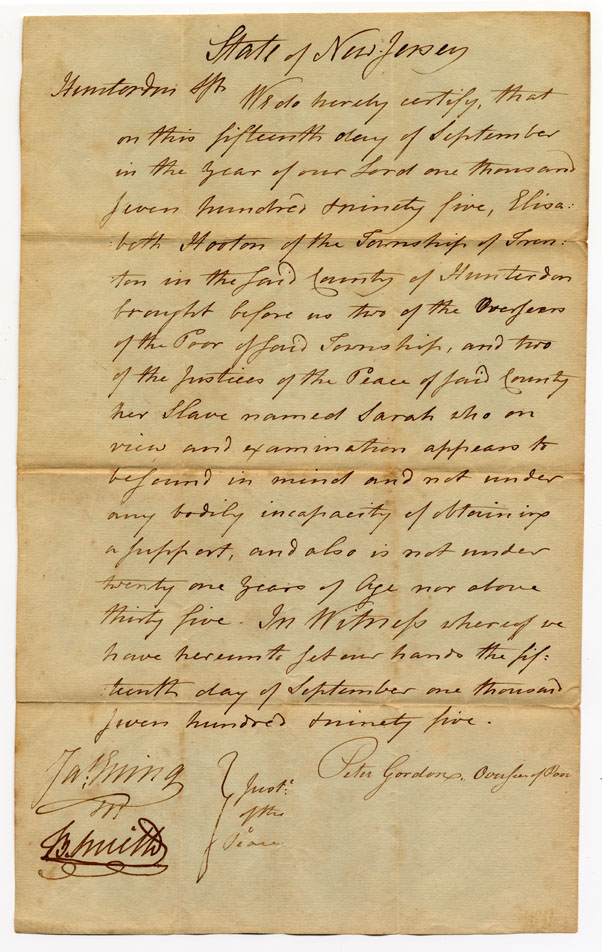 State of New Jersey
Hunterdon Ss
We do hereby certify, that
on this fifteenth day of September
in the Year of our Lord one thousand
seven hundred & ninety five, Elisa:
beth Hooton of the Township of Tren:
ton in the said County of Hunterdon
brought before us two of the Overseers
of the Poor of said Township, and two
of the Justices of the Peace of said County
her Slave named Sarah who on
view and examination appears to
be sound in mind and not under
any bodily incapacity of obtaining
a support, and also is not under
twenty one Years of Age nor above
thirty five. In Witness whereof we
have hereunto set our hands the fif:
teenth day of September one thousand
seven hundred & ninety five.
Peter Gordon Overseer of Poor
Jas. Ewing
B. Smith
Justs.
of the
Peace